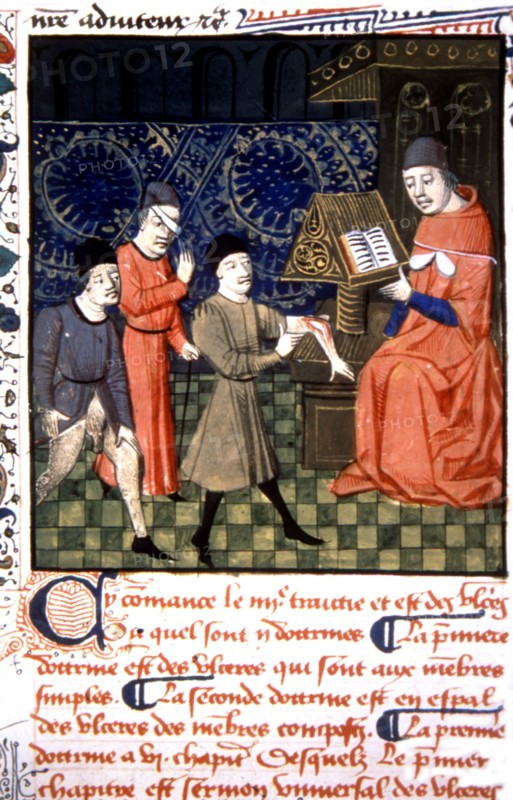 nr̃e aduteur ⁊c̃
Cy comance le iiijᵉ traictie et est des vlc̃es
ou quel sont ij doctrines ¶ La p̃miere
doctrine est des vlceres qui sont aux mẽbres
simples. ¶ La seconde doctrine est en espãl
des vlceres des mẽbres compoſtz. ¶ La premiẽ
doctrine a vj. chapit̃ Desquelz Le p̃mier
chapitre est sermon vniuersal des vlceres
PHOTO12